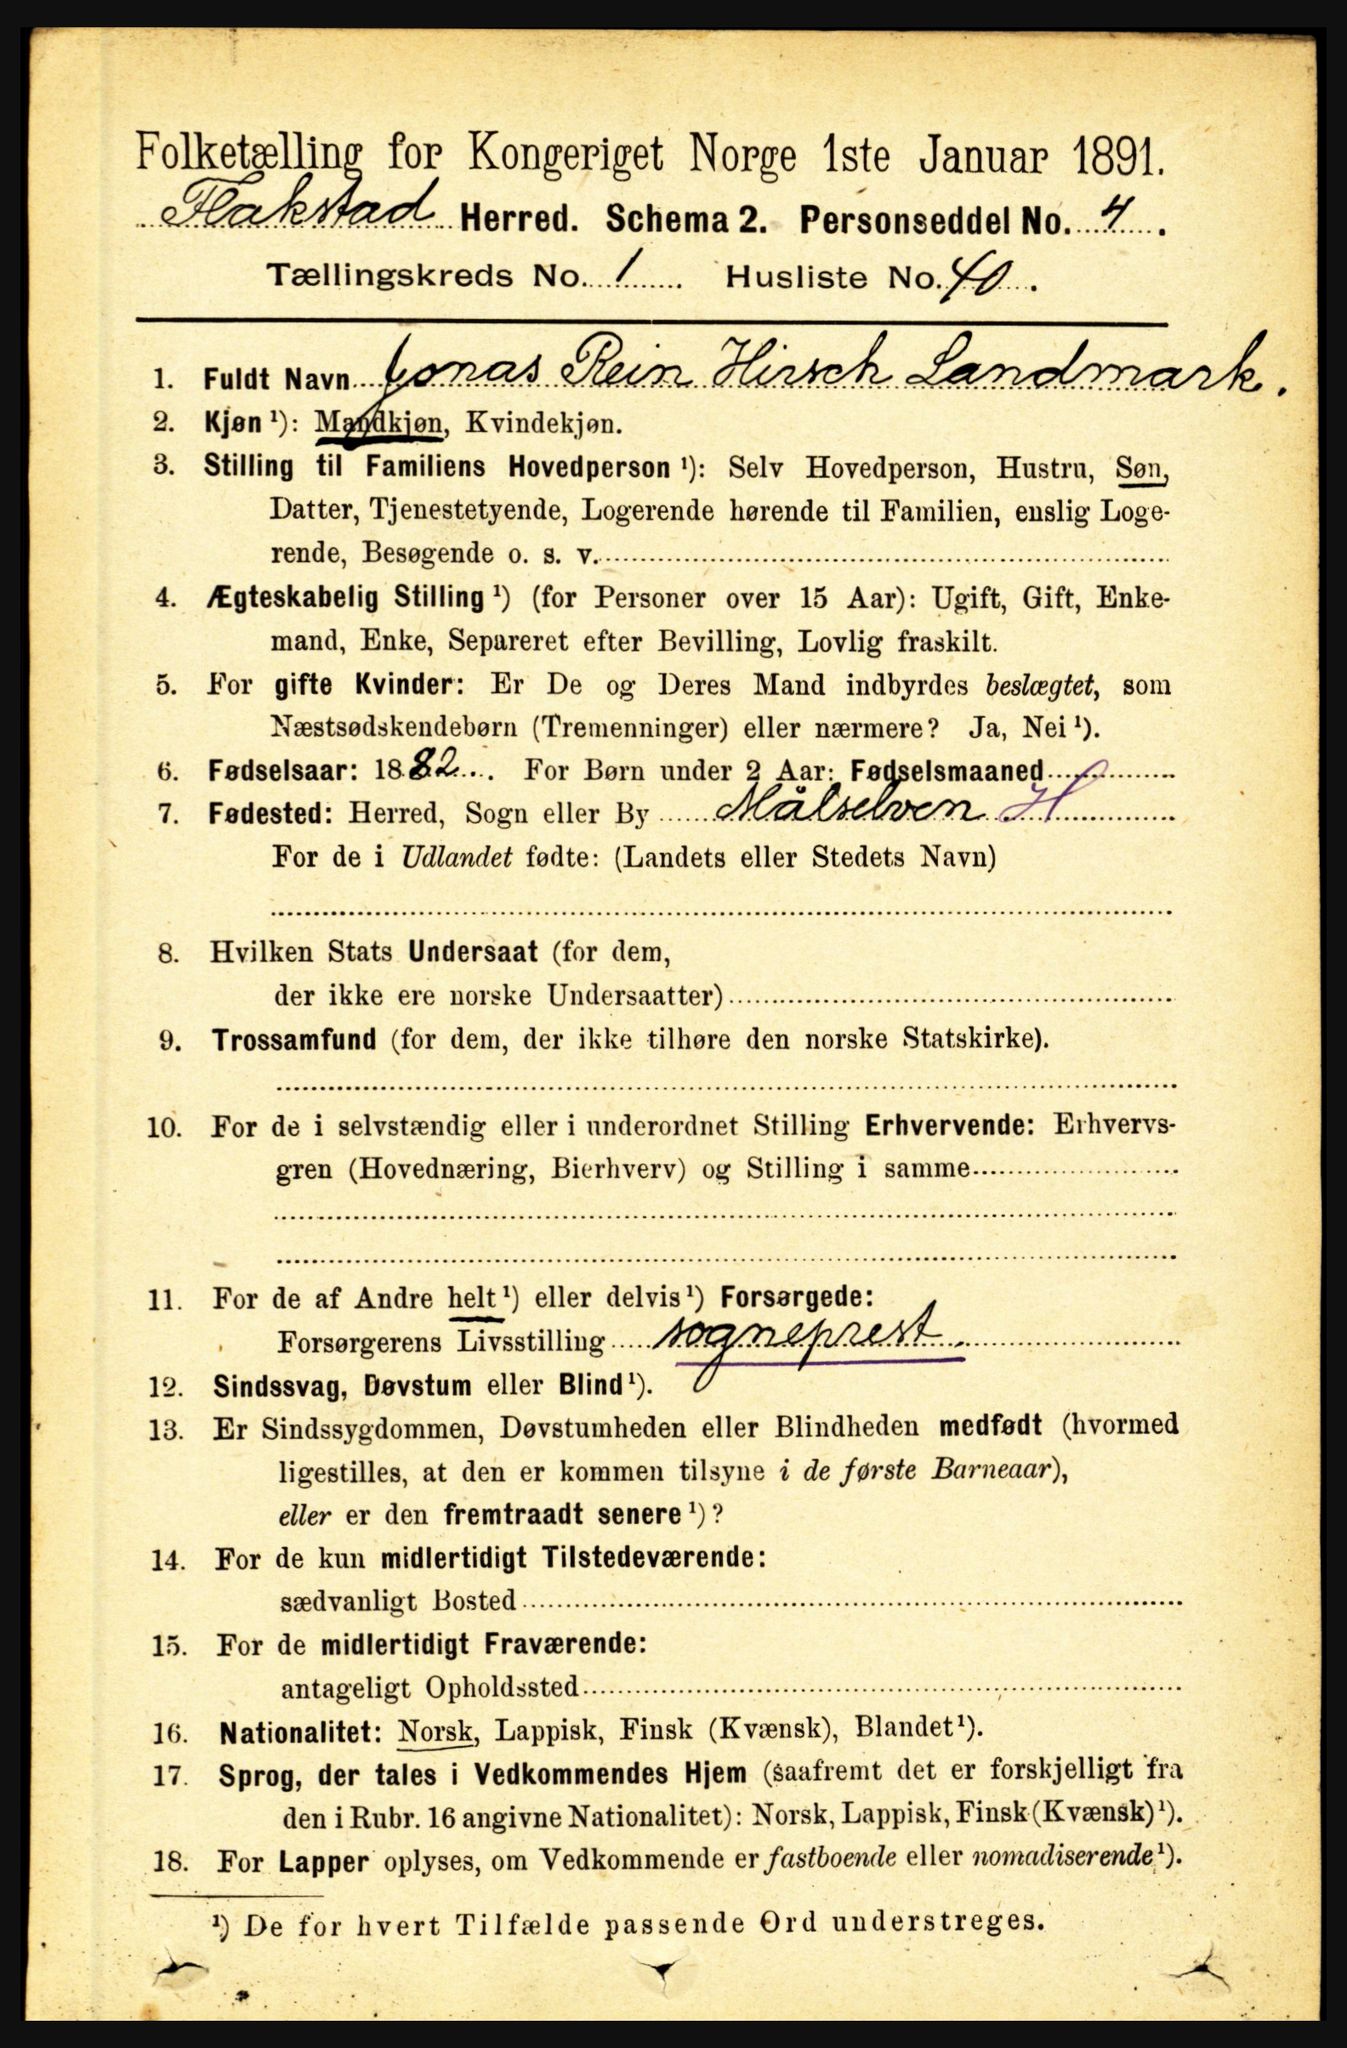 Folketælling for Kongeriget Norge 1ste Januar 1891.
Flakstad Herred. Schema 2. Personseddel No. 4.
Tællingskreds No. 1 Husliste No. 40.
1. Fuldt Navn Jonas Rein Hirsch Landmark.
2. Kjøn ¹): Mandkjøn, Kvindekjøn.
3. Stilling til Familiens Hovedperson ¹): Selv Hovedperson, Hustru, Søn,
Datter, Tjenestetyende, Logerende hørende til Familien, enslig Loge-
rende, Besøgende o. s. v.
4. Ægteskabelig Stilling ¹) (for Personer over 15 Aar): Ugift, Gift, Enke-
mand, Enke, Separeret efter Bevilling, Lovlig fraskilt.
5. For gifte Kvinder: Er De og Deres Mand indbyrdes beslægtet, som
Næstsødskendebørn (Tremenninger) eller nærmere? Ja, Nei ¹).
6. Fødselsaar: 1882. For Børn under 2 Aar: Fødselsmaaned
7. Fødested: Herred, Sogn eller By Målselven H
For de i Udlandet fødte: (Landets eller Stedets Navn)
8. Hvilken Stats Undersaat (for dem,
der ikke ere norske Undersaatter)
9. Trossamfund (for dem, der ikke tilhøre den norske Statskirke).
10. For de i selvstændig eller i underordnet Stilling Erhvervende: Erhvervs-
gren (Hovednæring, Bierhverv) og Stilling i samme
11. For de af Andre helt ¹) eller delvis ¹) Forsørgede:
Forsørgerens Livsstilling sogneprest.
12. Sindssvag, Døvstum eller Blind ¹).
13. Er Sindssygdommen, Døvstumheden eller Blindheden medfødt (hvormed
ligestilles, at den er kommen tilsyne i de første Barneaar),
eller er den fremtraadt senere ¹)?
14. For de kun midlertidigt Tilstedeværende:
sædvanligt Bosted
15. For de midlertidigt Fraværende:
antageligt Opholdssted
16. Nationalitet: Norsk, Lappisk, Finsk (Kvænsk), Blandet ¹).
17. Sprog, der tales i Vedkommendes Hjem (saafremt det er forskjelligt fra
den i Rubr. 16 angivne Nationalitet): Norsk, Lappisk, Finsk (Kvænsk) ¹).
18. For Lapper oplyses, om Vedkommende er fastboende eller nomadiserende ¹).
¹) De for hvert Tilfælde passende Ord understreges.